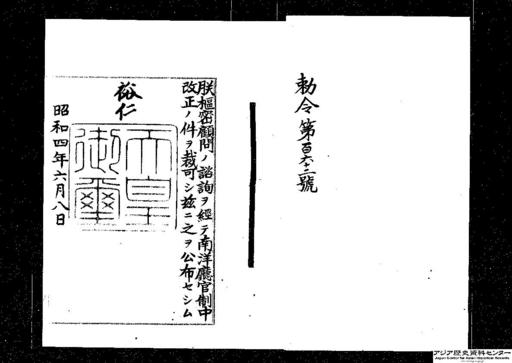 勅令第百六十二號
朕樞密顧問ノ諮詢ヲ經テ南洋廳官制中
改正ノ件ヲ裁可シ玆ニ之ヲ公布セシム
裕仁
天皇
御璽
昭和四年六月八日
アジア歴史資料センター
Japan Center for Asian Historical Records